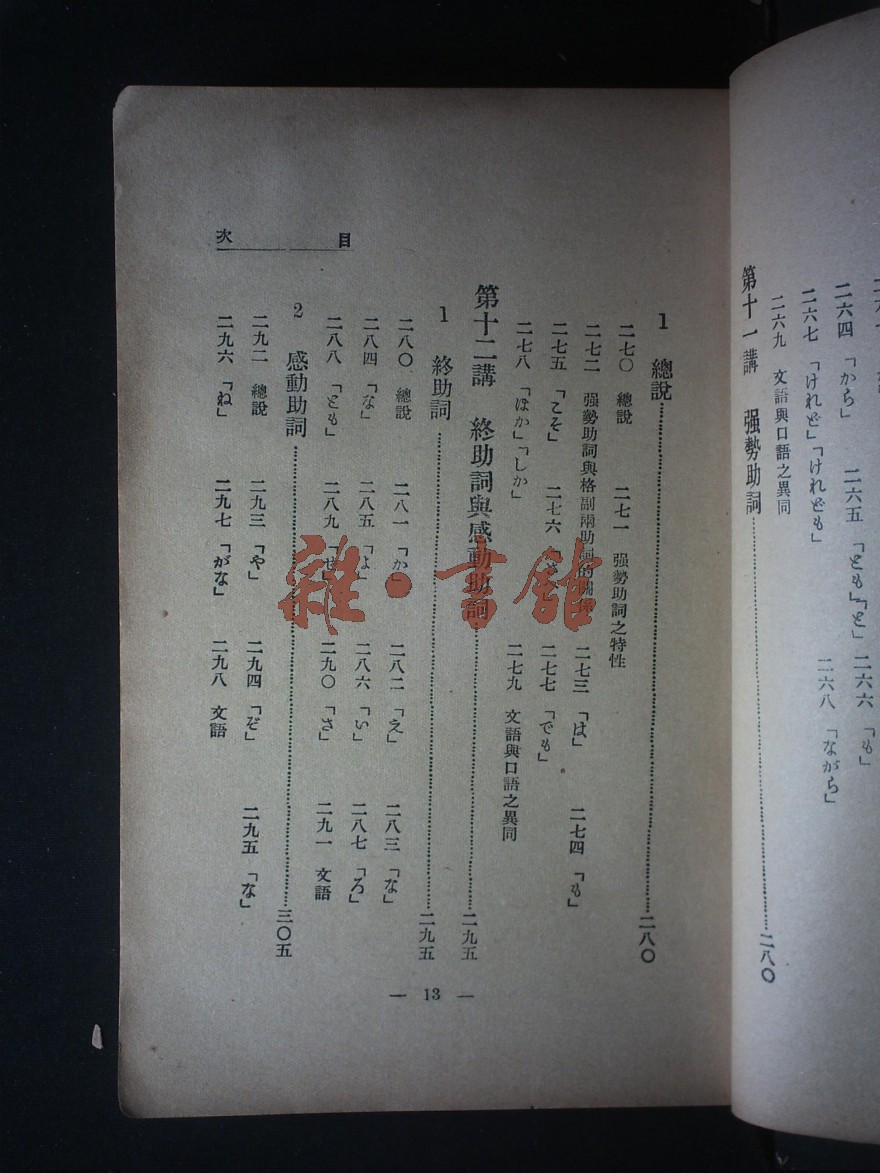 二六四　「から」　二六五　「とも」「と」　二六六　「も」
二六七　「けれど」「けれども」　二六八　「ながら」
二六九　文語與口語之異同
第十一講　强勢助詞……二八〇
目次
1　總說……二八〇
二七〇　總說　二七一　强勢助詞之特性
二七二　强勢助詞與格副兩助詞的關係　二七三　「は」　二七四　「も」
二七五　「こそ」　二七六　「さへ」　二七七　「でも」
二七八　「ほか」「しか」　二七九　文語與口語之異同
第十二講　終助詞與感動助詞……二九五
1　終助詞……二九五
二八〇　總說　二八一　「か」　二八二　「え」　二八三　「な」
二八四　「な」　二八五　「よ」　二八六　「い」　二八七　「ろ」
二八八　「とも」　二八九　「ぜ」　二九〇　「さ」　二九一　文語
2　感動助詞……三〇五
二九二　總說　二九三　「や」　二九四　「ぞ」　二九五　「な」
二九六　「ね」　二九七　「がな」　二九八　文語
— 13 —
雜·書館